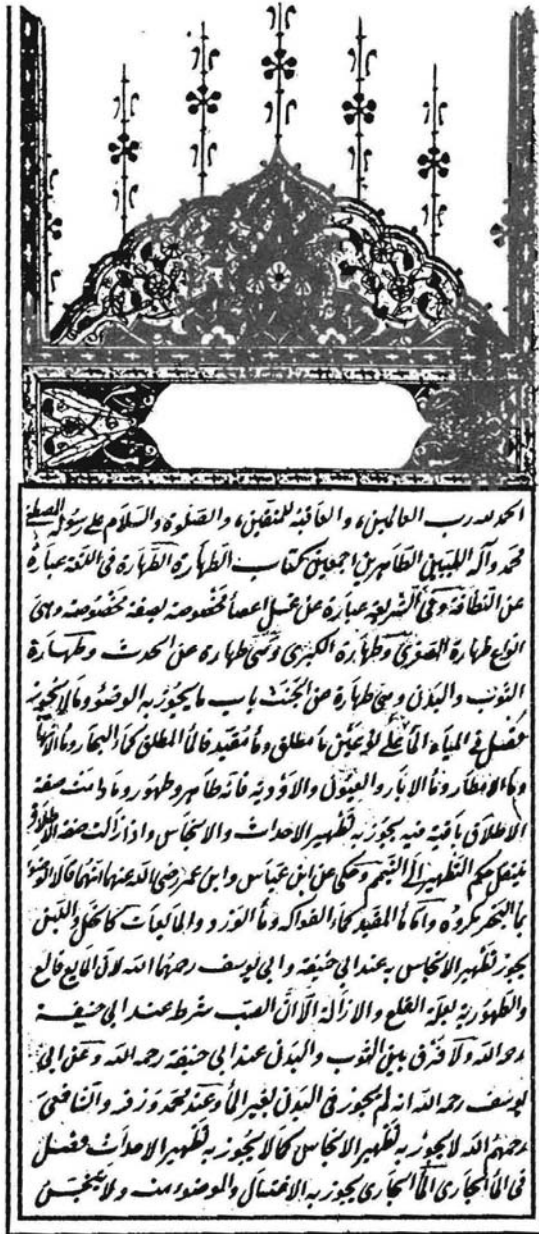 الحمد لله رب العالمين، والعاقبة للمتقين، والصلوة والسلام على رسوله المصطفى
محمد وآله الطيبين الطاهرين اجمعين كتاب الطهارة الطهارة في اللغة عبارة
عن النظافة وفي الشريعة عبارة عن غسل اعضأ مخصوصة بصفة مخصوصة وهي
انواع طهارة الصغرى وطهارة الكبرى وتسمى طهارة عن الحدث وطهارة
الثوب والبدن وهي طهارة عن الخبث باب ما يجوز به الوضوء وما لا يجوز به
فصل في المياه المأ على نوعين مأ مطلق ومأ مقيد فالمأ المطلق كمأ البحار ومأ الانهار
ومأ الامطار ومأ الابار والعيون والاودية فانه طاهر وطهور وما دامت صفة
الاطلاق باقية فيه يجوز به تطهير الاحداث والانجاس واذا زالت صفة الاطلاق
ينتقل حكم التطهير الى التيمم وحكى عن ابن عباس وابن عمر رضي الله عنهما انهما قالا الوضوء
بمأ البحر مكروه واما المأ المقيد كمأ الفواكه ومأ الورد والمايعات كالخل واللبن
يجوز تطهير الانجاس به عند ابي حنيفة وابي يوسف رحمهما الله لان المايع قالع
والطهورية بعلة القلع والازالة الا ان الصب شرط عند ابي حنيفة
رحمه الله ولا فرق بين الثوب والبدن عند ابي حنيفة رحمه الله وعن ابي
يوسف رحمه الله انه لم يجوز في البدن بغير المأ وعند محمد وزفر والشافعي
رحمهم الله لا يجوز به تطهير الانجاس كما لا يجوز به تطهير الاحداث فصل
في المأ الجاري المأ الجاري يجوز به الاغتسال والوضوء منه ولا يتنجس